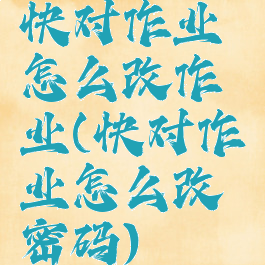 快对作业
怎么改作
业(快对作
业怎么改
密码)